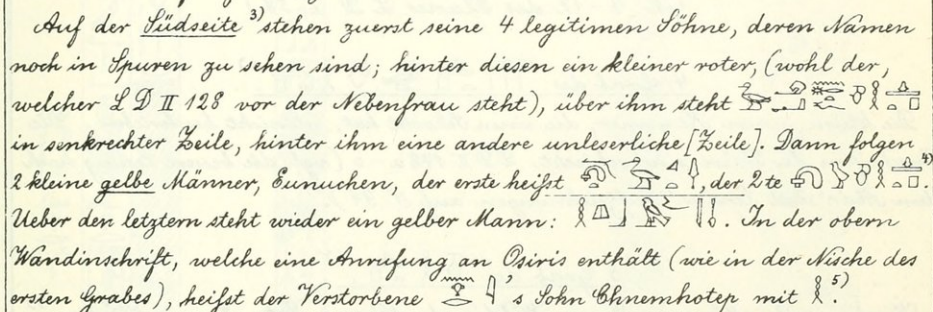 Auf der Südseite 3) stehen zuerst seine 4 legitimen Söhne, deren Namen
noch in Spuren zu sehen sind; hinter diesen ein kleiner roter, (wohl der,
welcher LD II 128 vor der Nebenfrau steht), über ihm steht
in senkrechter Zeile, hinter ihm eine andere unleserliche [Zeile]. Dann folgen
2 kleine gelbe Männer, Eunuchen, der erste heißt , der 2te 4).
Ueber den letztern steht wieder ein gelber Mann: . In der obern
Wandinschrift, welche eine Anrufung an Osiris enthält (wie in der Nische des
ersten Grabes), heißt der Verstorbene 's Sohn Chnemhotep mit 5).